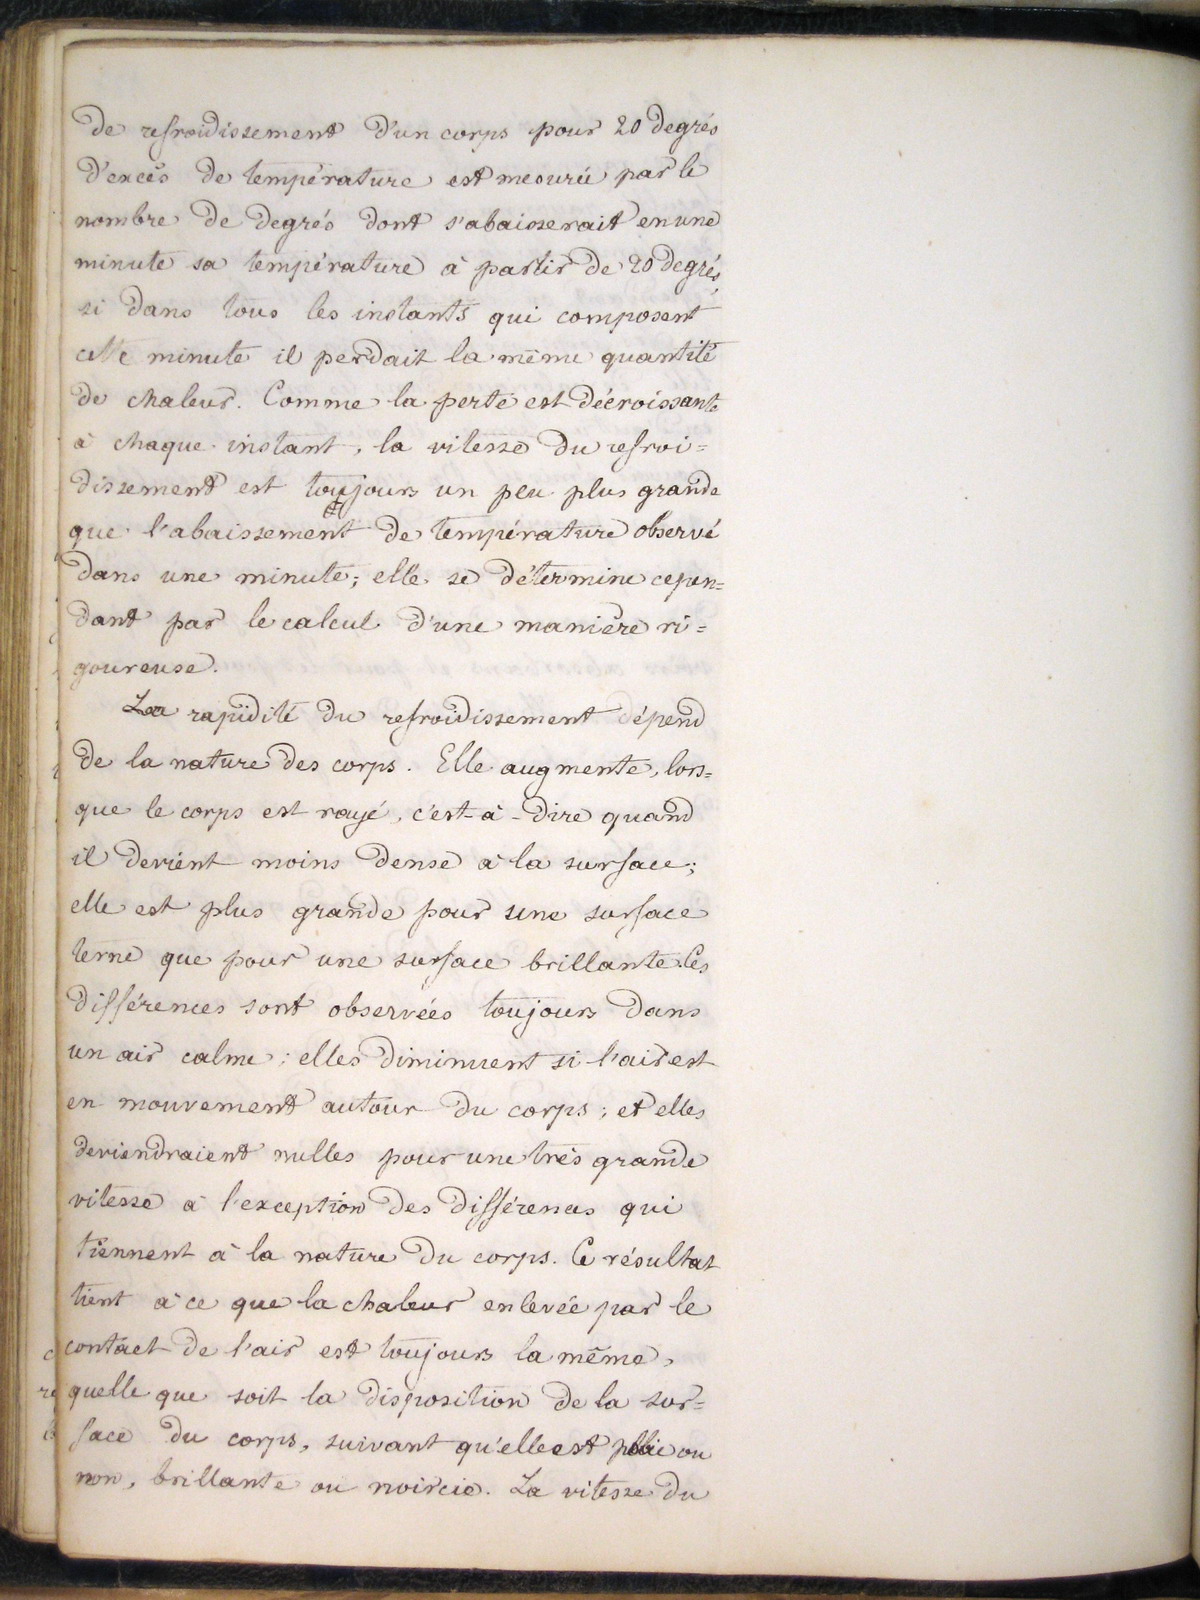 de refroidissement d'un corps pour 20 degrés
d'excès de température est mesurée par le
nombre de degrés dont s'abaisserait en une
minute sa température à partir de 20 degrés,
si dans tous les instants qui composent
cette minute il perdait la même quantité
de chaleur. Comme la perte est décroissante
à chaque instant, la vitesse du refroi=
dissement est toujours un peu plus grande
que l'abaissement de température observé
dans une minute; elle se détermine cepen=
dant par le calcul d'une manière ri=
goureuse.
La rapidité du refroidissement dépend
de la nature des corps. Elle augmente, lors=
que le corps est rayé, c'est-à-dire quand
il devient moins dense à la surface;
elle est plus grande pour une surface
terne que pour une surface brillante. Ces
différences sont observées toujours dans
un air calme; elles diminuent si l'air est
en mouvement autour du corps; et elles
deviendraient nulles pour une très grande
vitesse à l'exception des différences qui
tiennent à la nature du corps. Ce résultat
tient à ce que la chaleur enlevée par le
contact de l'air est toujours la même,
quelle que soit la disposition de la sur=
face du corps, suivant qu'elle est polie ou
non, brillante ou noircie. La vitesse du